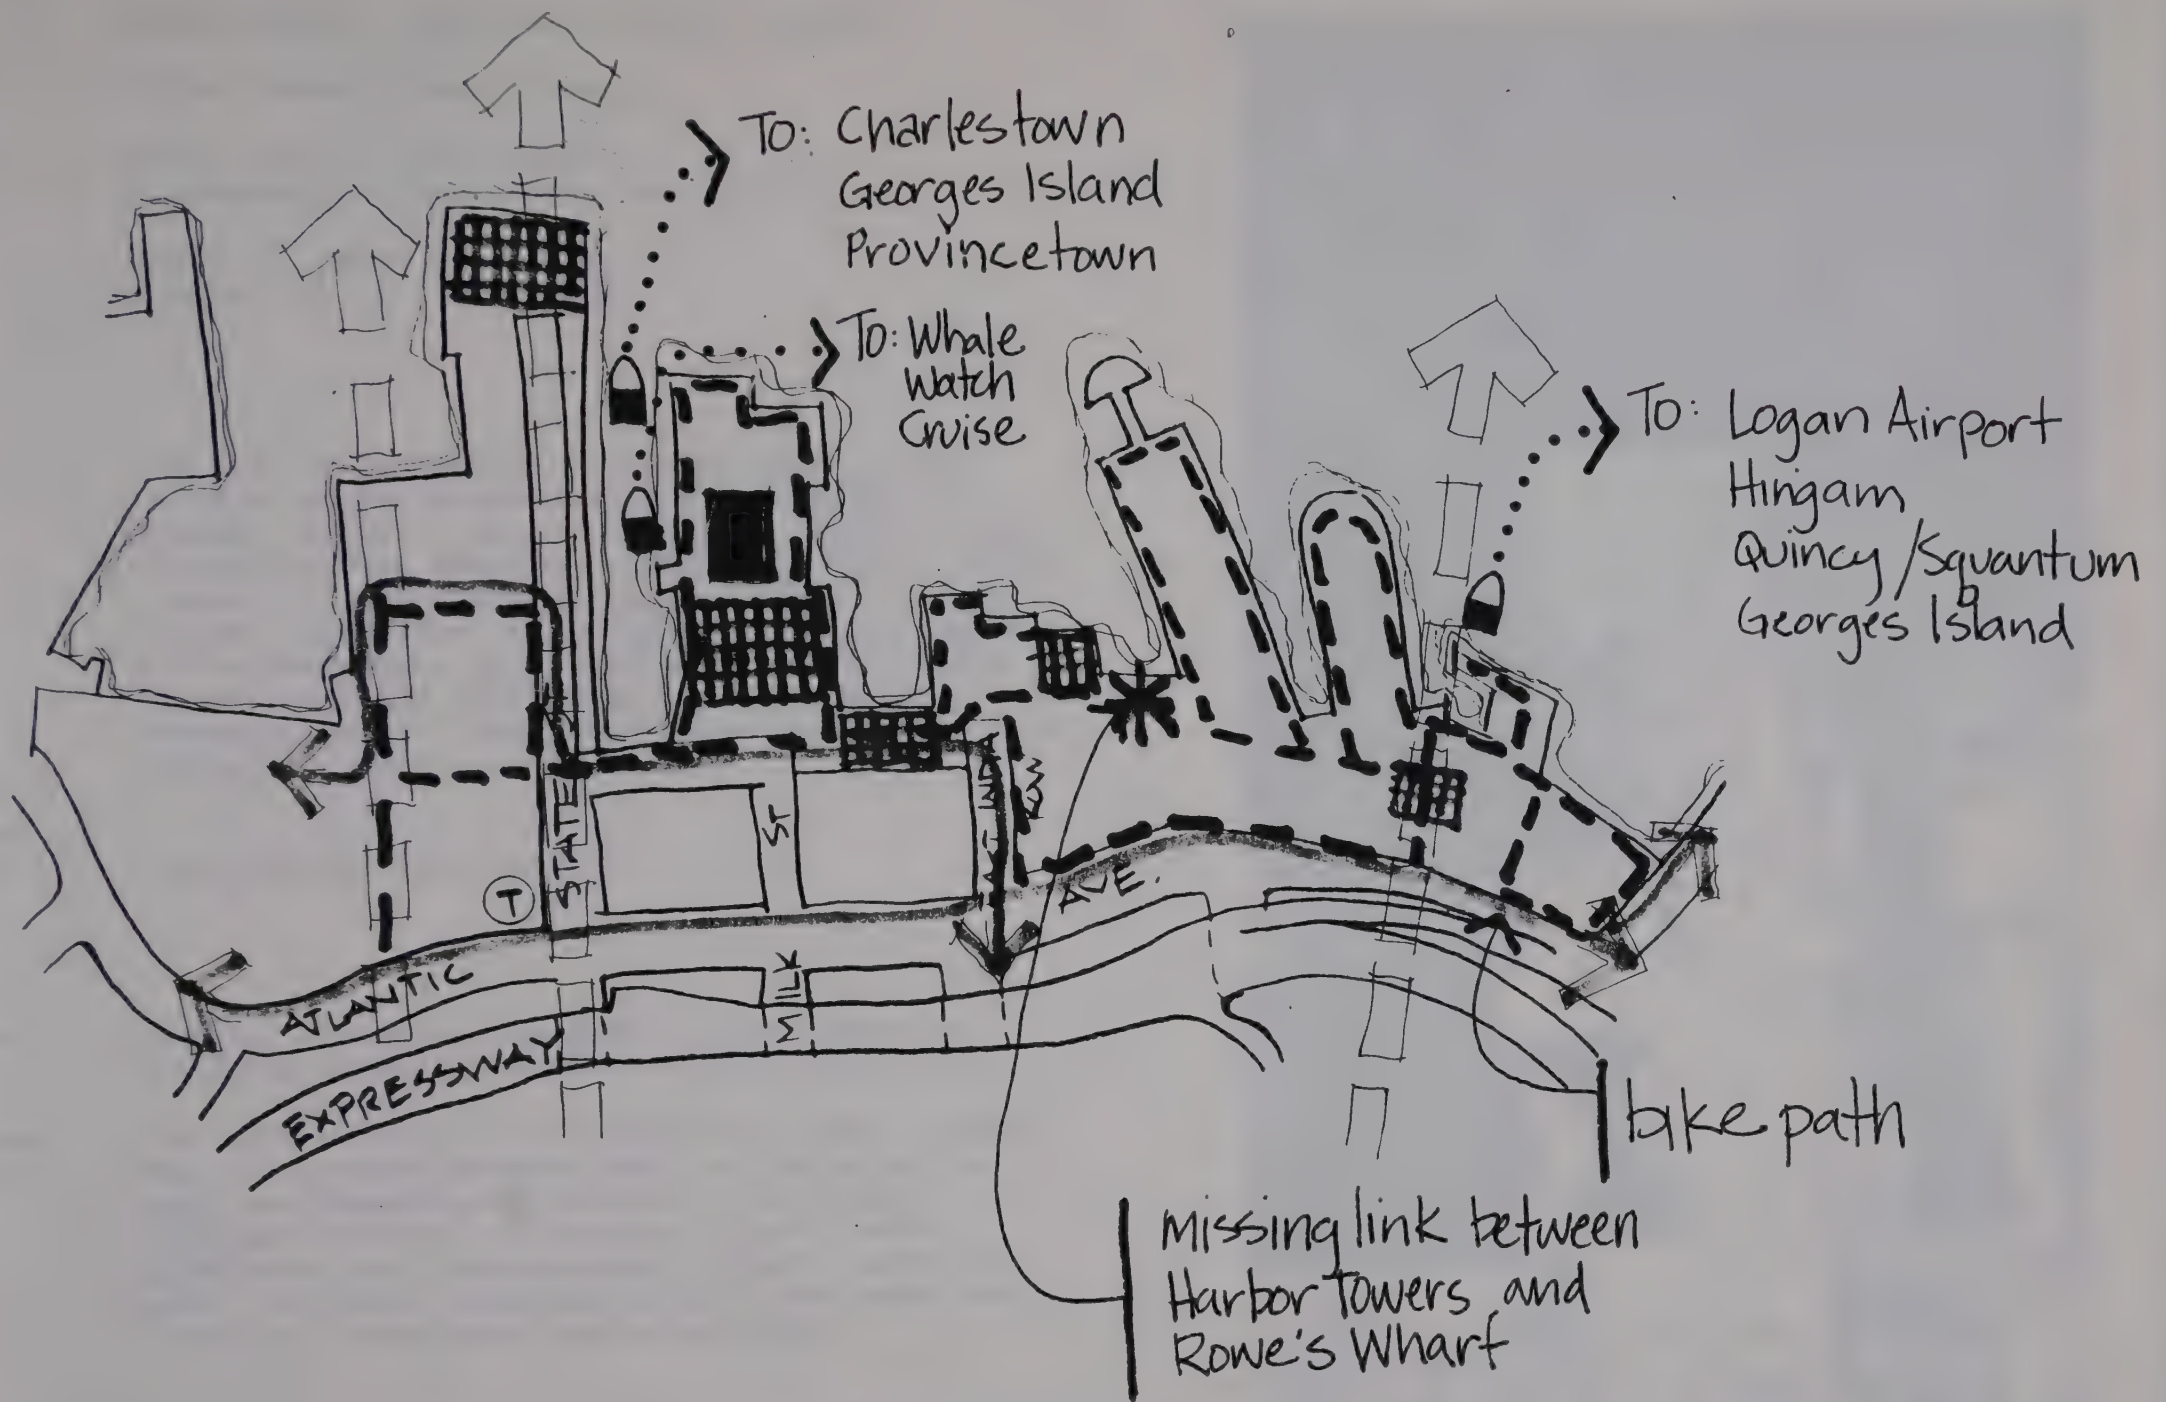 To: Charlestown
Georges Island
Provincetown
To: Whale
Watch
Cruise
To: Logan Airport
Hingam
Quincy/Squantum
Georges Island
STATE
ST
INDIA
ROW
T
AVE.
ATLANTIC
MILK
EXPRESSWAY
bike path
Missing link between
Harbor Towers and
Rowe's Wharf